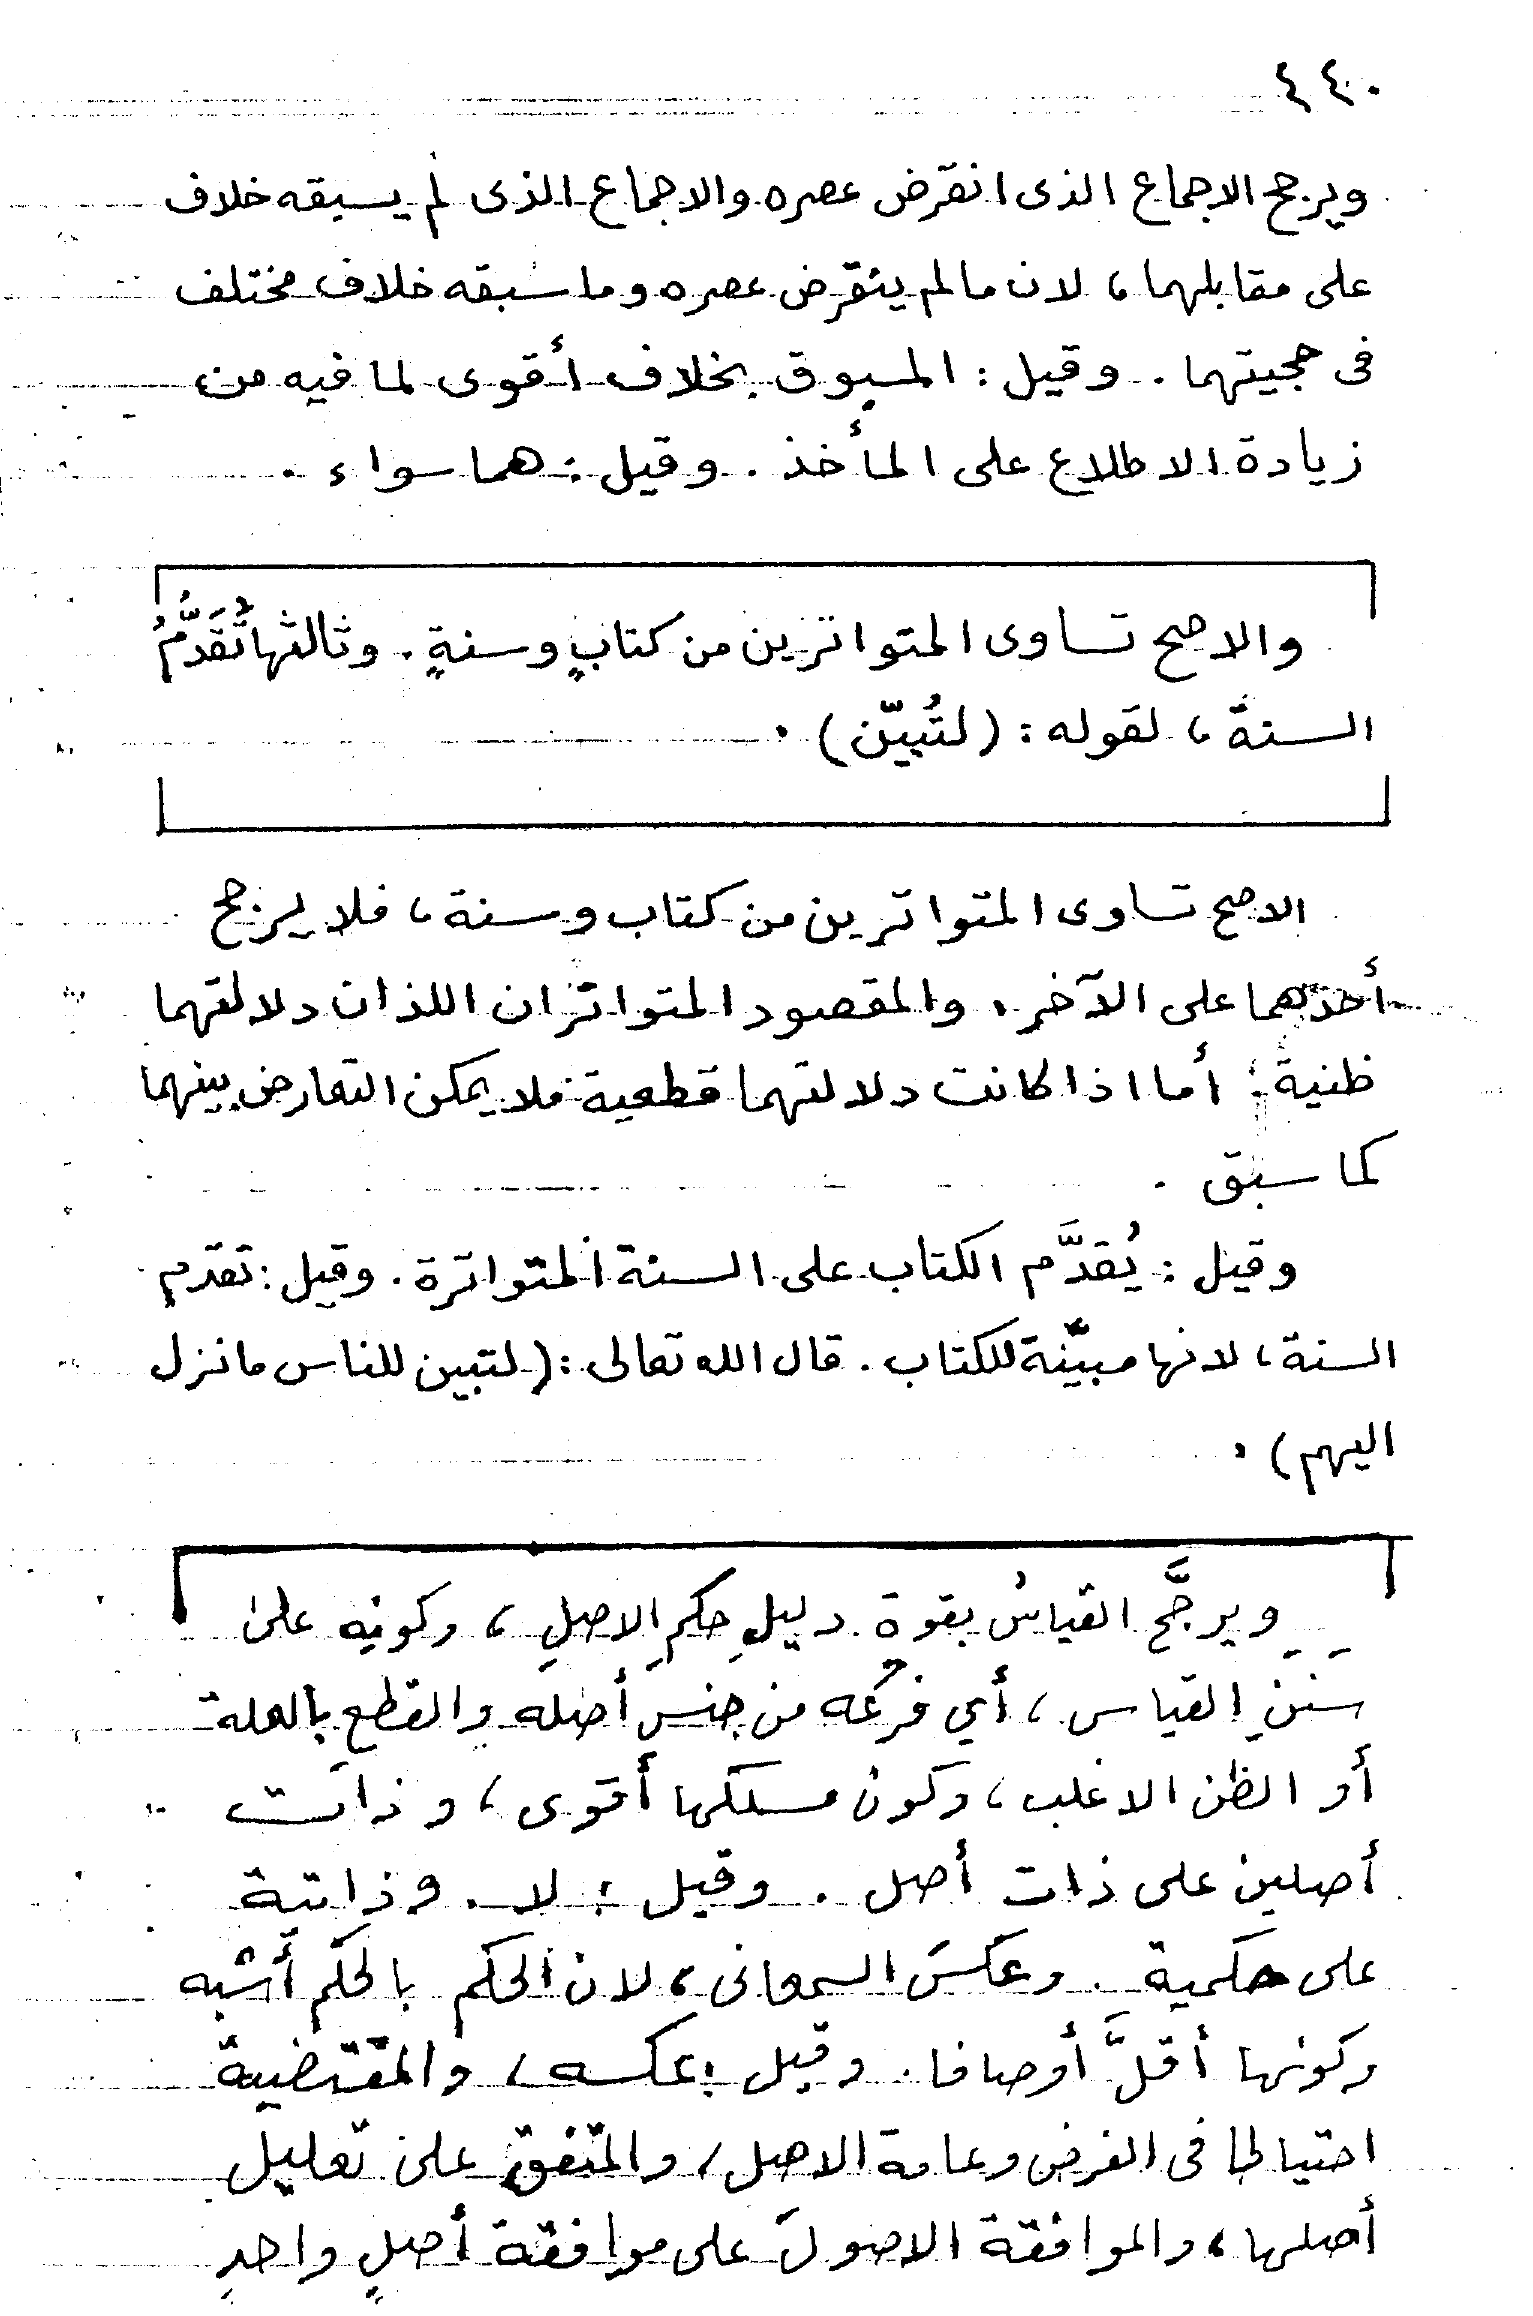 ٤٤٠
ويرجح الاجماع الذى انقرض عصره والاجماع الذى لم يسبقه خلاف
على مقابلهما، لان مالم ينقرض عصره وما سبقه خلاف مختلف
فى حجيتهما. وقيل: المسبوق بخلاف أقوى لما فيه من
زيادة الاطلاع على المأخذ. وقيل: هما سواء.
والاصح تساوى المتواترين من كتابٍ وسنةٍ. وثالثها تُقَدَّمُ
السنةُ، لقوله: (لتُبيّن).
الاصح تساوى المتواترين من كتاب وسنة، فلا يرجح
أحدهما على الآخر. والمقصود المتواتران اللذان دلالتهما
ظنية: أما اذا كانت دلالتهما قطعية فلا يمكن التعارض بينهما
كما سبق.
وقيل: يُقدَّم الكتاب على السنة المتواترة. وقيل: تقدّم
السنة، لانها مبيّنة للكتاب. قال الله تعالى: (لتبين للناس ما نزل
اليهم).
ويرجَّح القياسُ بقوة دليلِ حكمِ الاصلِ، وكونِه على
سَنَنِ القياس، أي فرعُه من جنسِ أصله والقطع بالعلة
أو الظن الاغلب، وكون مسلكها أقوى، وذات
أصلين على ذات أصل. وقيل: لا. وذاتية
على حكمية. وعكسَ السمعانى، لان الحكم بالحكم أشبه
وكونها أقلَّ أوصافا. وقيل: عكسه، والمقتضية
احتياطا فى الفرض وعامة الاصل، والمتفق على تعليل
أصلها، والموافقة الاصول على موافقة أصلٍ واحدٍ